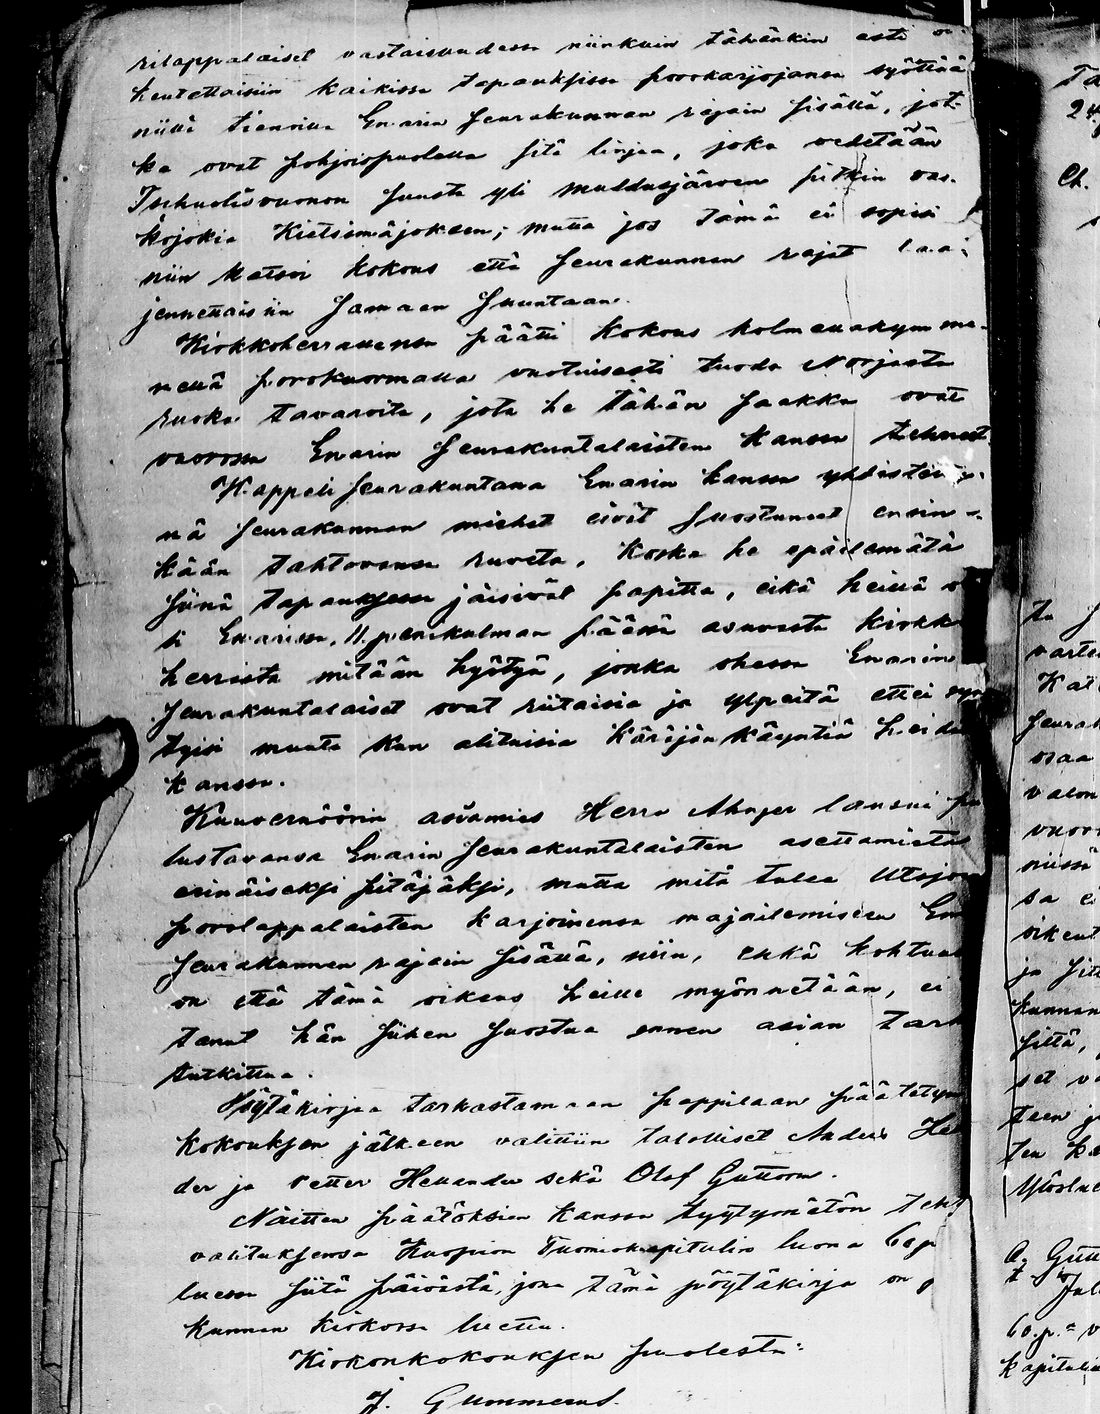 rilappalaiset vastaisuudessa niinkuin tähänkin asti
keutettaisiin kaikissa tapauksissa porokarjojansa syöttää
niillä tienoilla Enarin seurakunnan rajain sisällä, jot-
ka ovat pohjoispuolella sitä linjaa, joka vedetään
suusta yli Muddusjärven pitkin vas-
kojokia Kietsimäjokeen; mutta jos tämä ei sopisi
niin katsoi kokous että seurakunnan rajat laa-
jennettaisiin samaan suuntaan.
Kirkkoherrallensa päätti kokous kolmellakymme-
nellä porokuormalla vuotuisesti tuoda Norjasta
ruoka tavaroita, jota he tähän saakka ovat
vuorossa Enarin seurakuntalaisten kanssa tehneet
Kappeli seurakuntana Enarin kanssa yhdistetty-
nä seurakunnan miehet eivät suostuneet ensin-
kään tahtovansa ruveta, koska he epäilemätä
siinä tapauksessa jäisivät papitta, eikä heillä o
li Enarissa, 11 penikulman päässä asuvasta kirkko
herrasta mitään hyötyä, jonka ohessa Enarin
seurakuntalaiset ovat riitaisia ja ylpeitä ettei syn
tyisi muuta kun alituisia käräjän käyntiä heidän
kanssa.
Kuvernöörin asiamies Herra Ahnger lausui pu
lustavansa Enarin seurakuntalaisten asettamista
erinäiseksi pitäjäksi, mutta mitä tulee Utsjoen
porolappalaisten karjoinensa majailemiseen En
seurakunnan rajain sisällä, niin, ehkä kohtuul
on että tämä oikeus heille myönnetään, ei
tanut hän siihen suostua ennen asian tark
tutkittua.
Pöytäkirjaa tarkastamaan pappilaan päätetyn
kokouksen jälkeen valittiin talolliset Anders Hel
der ja Petter Helander sekä Olof Guttorm.
Näitten päätöksien kanssa tyytymätön teh
valituksensa Kuopion Tuomiokapitulin luona 60 p
luessa siitä päivästä, jona tämä pöytäkirja on
kunnan kirkossa luettu.
Kirkonkokouksen puolesta:
J. Gummerus.
24
Ch.
ta
varte
Kat
seurak
osaa
valon
vuoro
niissä
sa ei
oikeut
ja sitt
kunnan
sittä,
set va
teen j
ten ka
Ylöslue
O. Gutt
60. p. v
kapituli